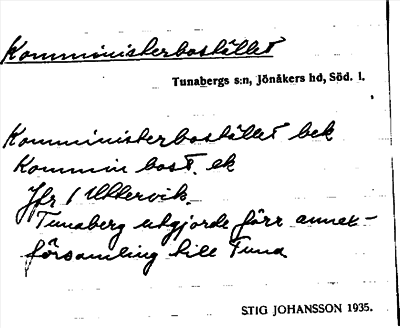 Komministerbostället
Tunabergs s:n, Jönåkers hd, Söd. l.
Komministerbostället bek
Kommin bost. ek
Jfr 1 Uttervik.
Tunaberg utgjorde förr annex-
församling till Tuna
STIG JOHANSSON 1935.